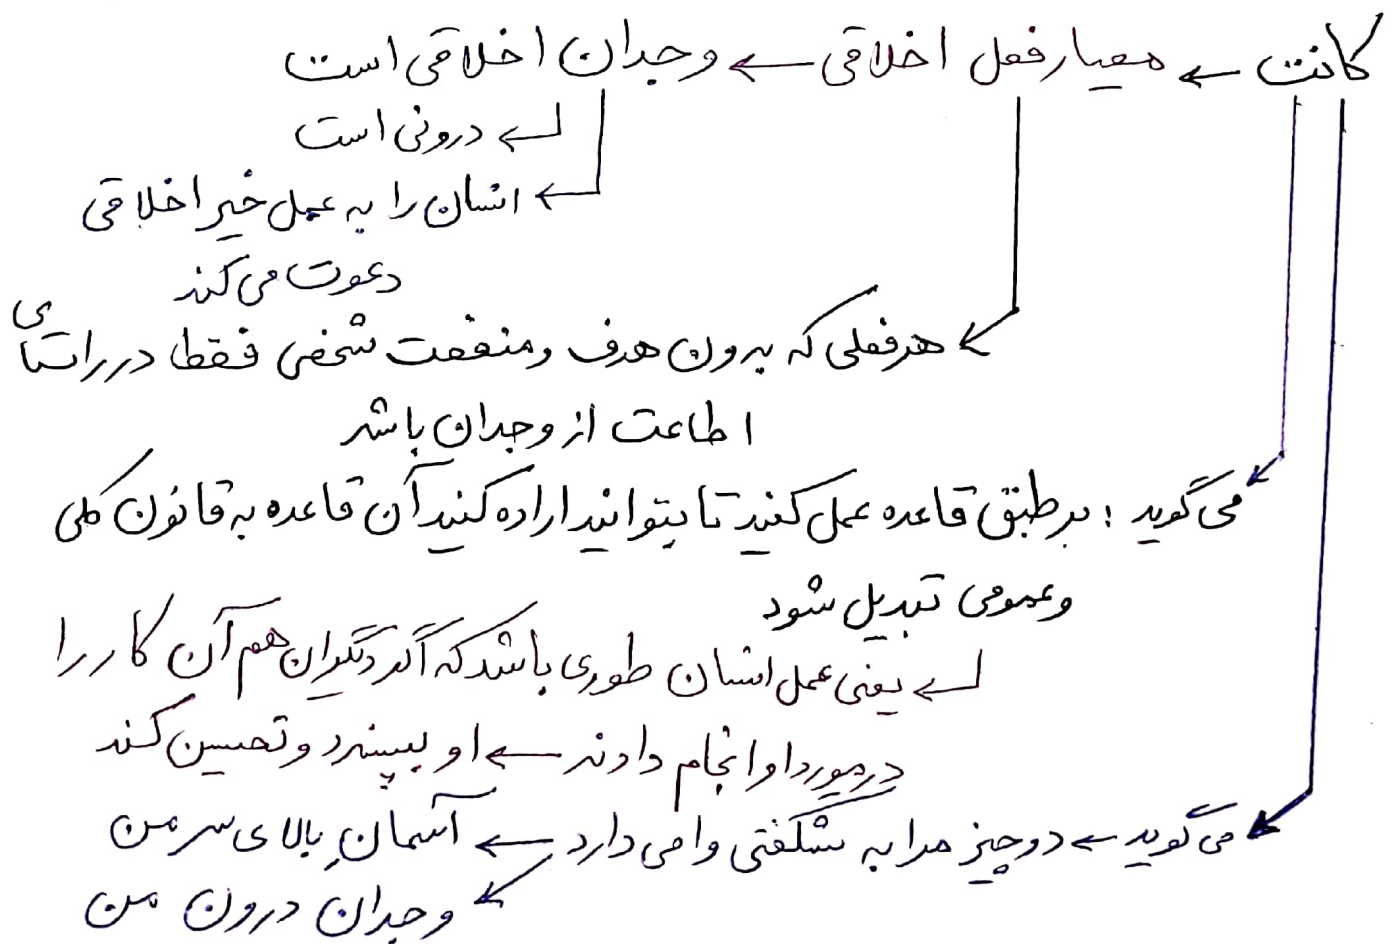 کانت ← معیار فعل اخلاقی ← وجدان اخلاقی است
← درونی است
← انسان را به عمل خیر اخلاقی
دعوت می‌کند
← هر فعلی که بدون هدف و منفعت شخصی فقط در راستای
اطاعت از وجدان باشد
می‌گوید : بر طبق قاعده عمل کنید تا بتوانید اراده کنید آن قاعده به قانون کلی
و عمومی تبدیل شود
← یعنی عمل انسان طوری باشد که اگر دیگران هم آن کار را
در مورد او انجام دادند ← او بپسندد و تحسین کند
می‌گوید ← دو چیز مرا به شگفتی وا می‌دارد ← آسمانِ بالای سر من
← وجدانِ درون من